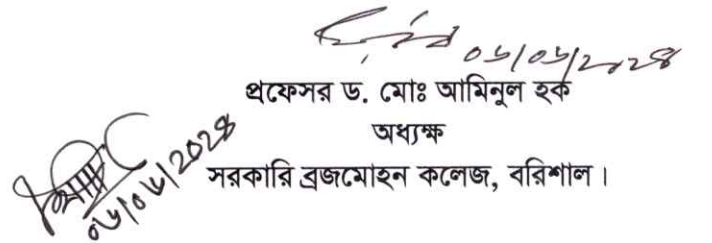 ০৬/০৬/২০২৪
প্রফেসর ড. মোঃ আমিনুল হক
অধ্যক্ষ
সরকারি ব্রজমোহন কলেজ, বরিশাল।
০৬/০৬/২০২৪